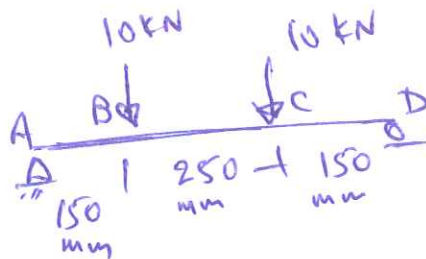 10 kN 10 kN
A B C D
150 mm 250 mm 150 mm